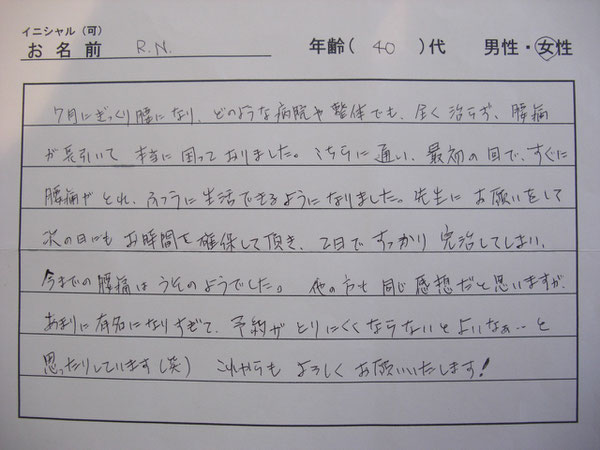 イニシャル(可)
お名前 R.N. 年齢( 40 )代 男性・女性
7月にぎっくり腰になり、どのような病院や整体でも、全く治らず、腰痛
が長引いて 本当に困っておりました。こちらに通い、最初の1回で、すぐに
腰痛がとれ、ふつうに生活できるようになりました。先生にお願いをして
次の日にもお時間を確保して頂き、2日ですっかり完治してしまい、
今までの腰痛はうそのようでした。 他の方も同じ感想だと思いますが、
あまりに有名になりすぎて、予約がとりにくくならないとよいなぁ‥と
思ったりしています(笑) これからもよろしくお願いいたします!